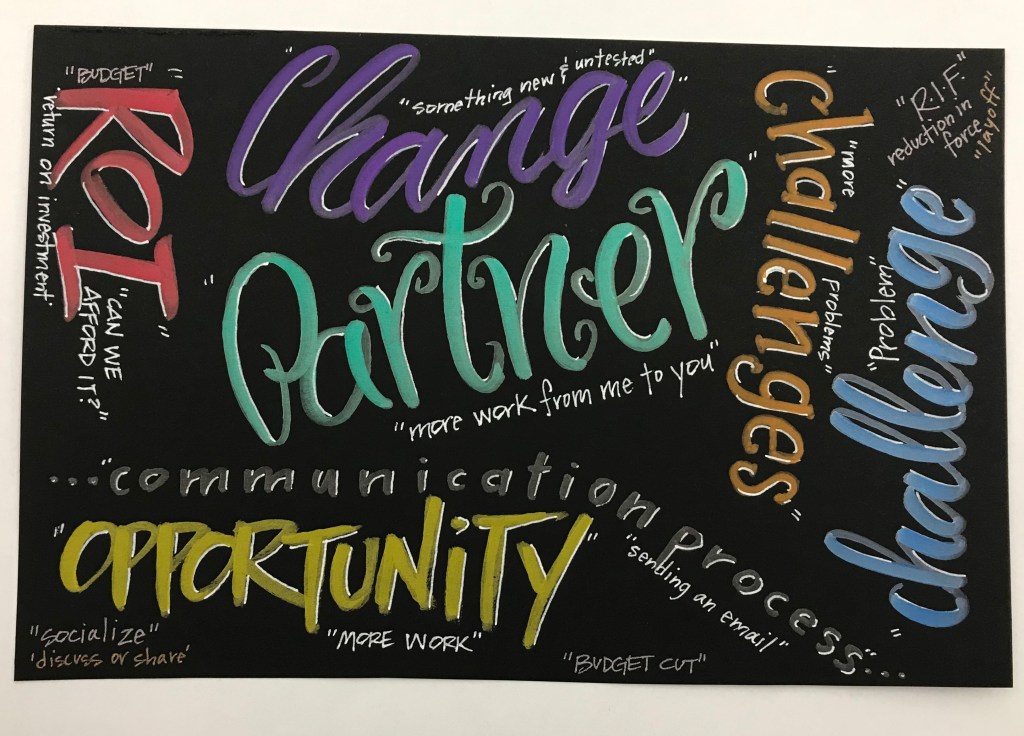 "BUDGET" =
"ROI"
"return on investment"
"CAN WE
AFFORD IT?"
"Change"
"something new & untested"
"Partner"
"more work from me to you"
"challenges" =
"more
problems"
"R.I.F."
reduction in
force
"layoff"
"challenge"
"Problem"
..."communication process"...
"sending an email"
"OPPORTUNITY"
"MORE WORK"
"socialize"
'discuss or share'
"BUDGET CUT"